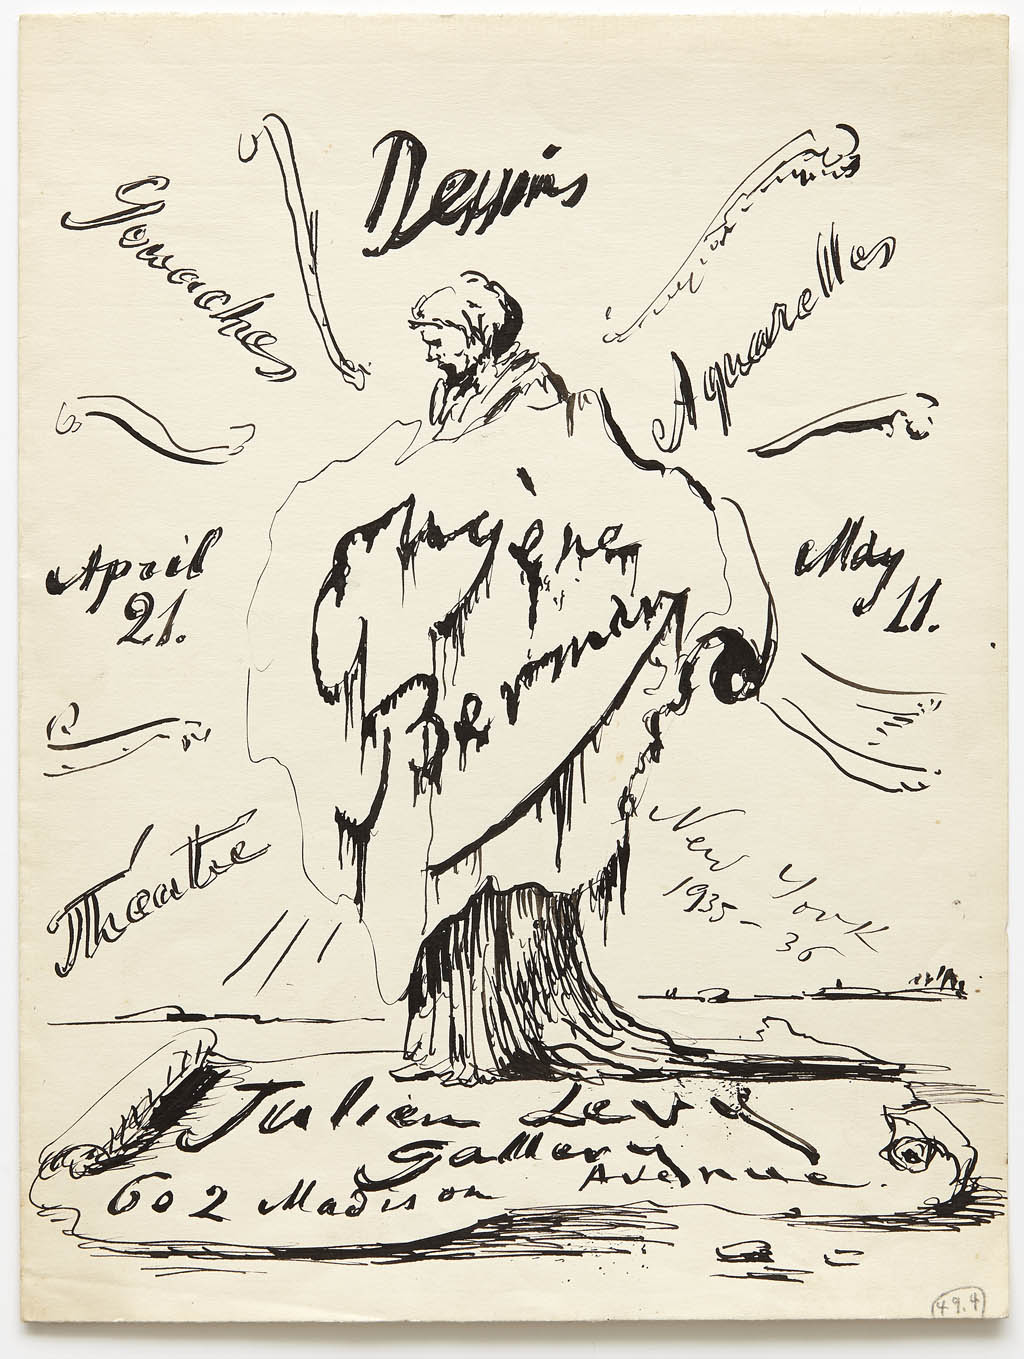 Dessins
Gouaches
Aquarelles
Eugène
Berman
April
21.
May
11.
Théatre
New York
1935-36
Julien Levy
Gallery
602 Madison Avenue.
49.4